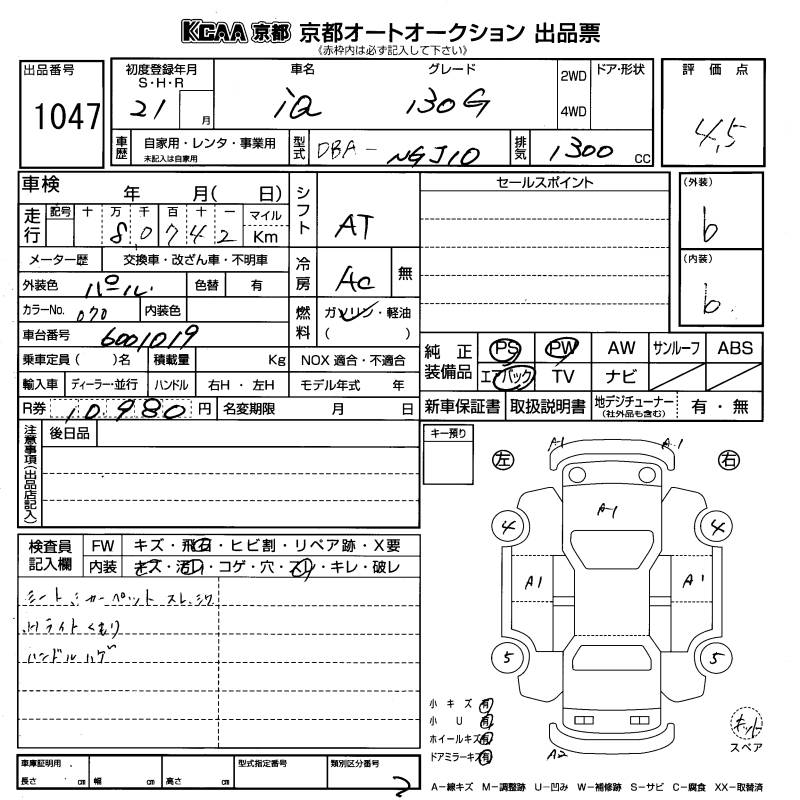 KCAA 京都 京都オートオークション 出品票
《赤枠内は必ず記入して下さい》
出品番号
1047
初度登録年月
S・H・R
21 月
車名
iQ
グレード
130G
2WD
4WD
ドア・形状
評価点
4.5
車歴
自家用・レンタ・事業用
未記入は自家用
型式
DBA-NGJ10
排気
1300 CC
車検 年 月( 日)
走行
記号 十 万 千 百 十 一 マイル
8 0 7 4 2 Km
メーター歴 交換車・改ざん車・不明車
外装色 パール 色替 有
カラーNo. 070 内装色
車台番号 6001019
乗車定員( )名 積載量 Kg
輸入車 ディーラー・並行 ハンドル 右H・左H
R券 10,980 円 名変期限 月 日
シフト
AT
冷房
AC 無
燃料
ガソリン・軽油
( )
NOX 適合・不適合
モデル年式 年
セールスポイント
(外装)
b
(内装)
b
純正装備品
PS PW AW サンルーフ ABS
エアバック TV ナビ
新車保証書 取扱説明書 地デジチューナー
(社外品も含む)
有・無
注意事項(出品店記入)
後日品
キー預り
検査員記入欄
FW キズ・飛石・ヒビ割・リペア跡・X要
内装 キズ・汚レ・コゲ・穴・スレ・キレ・破レ
シート、カーペット スレ、シワ
Hライトくもり
ハンドルハゲ
左
右
A-1
A-1
A-1
4
4
A1
A1
5
5
A2
小キズ 有
小U 有
ホイールキズ 有
ドアミラーキズ 有
キット
スペア
車庫証明用
長さ cm 幅 cm 高さ cm
型式指定番号
類別区分番号
A―線キズ M―調整跡 U―凹み W―補修跡 S―サビ C―腐食 XX―取替済